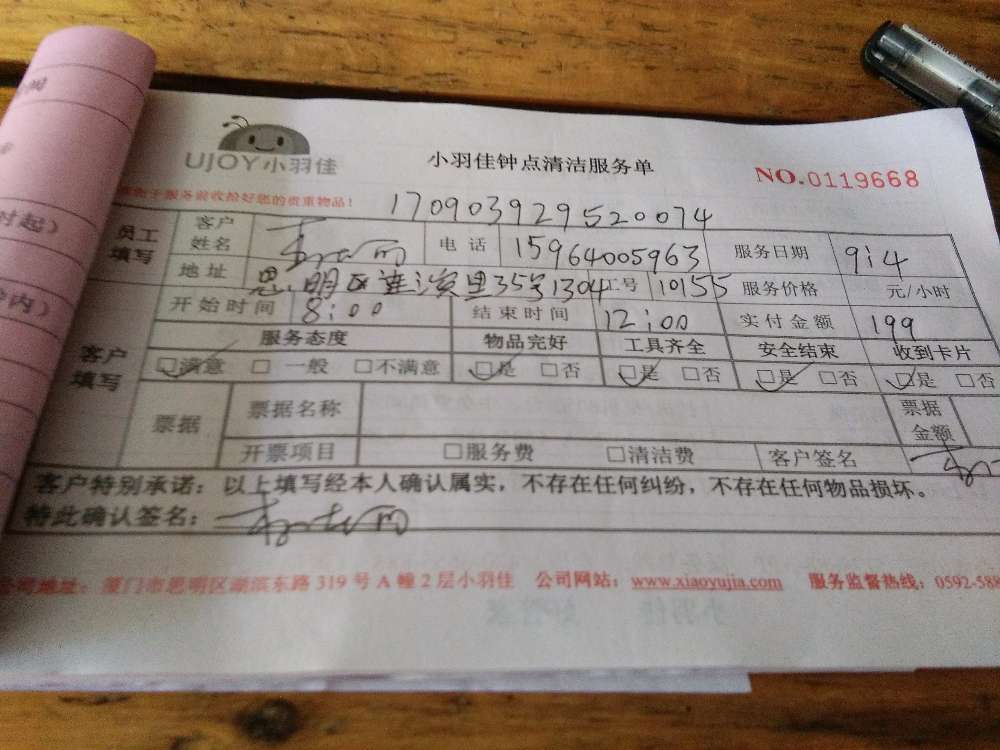 UJOY小羽佳
小羽佳钟点清洁服务单
NO.0119668
服务前收拾好您的贵重物品！
170903929520074
员工填写 客户姓名 电话 15964005963 服务日期 9:4
地址 思明区莲滨里35号1304 工号 10155 服务价格 元/小时
开始时间 8:00 结束时间 12:00 实付金额 199
客户填写 服务态度 物品完好 工具齐全 安全结束 收到卡片
□满意 □一般 □不满意 □是 □否 □是 □否 □是 □否 □是 □否
票据 票据名称 票据金额
开票项目 □服务费 □清洁费 客户签名
客户特别承诺：以上填写经本人确认属实，不存在任何纠纷，不存在任何物品损坏。
特此确认签名：
公司地址：厦门市思明区湖滨东路319号A幢2层小羽佳 公司网站：www.xiaoyujia.com 服务监督热线：0592-588